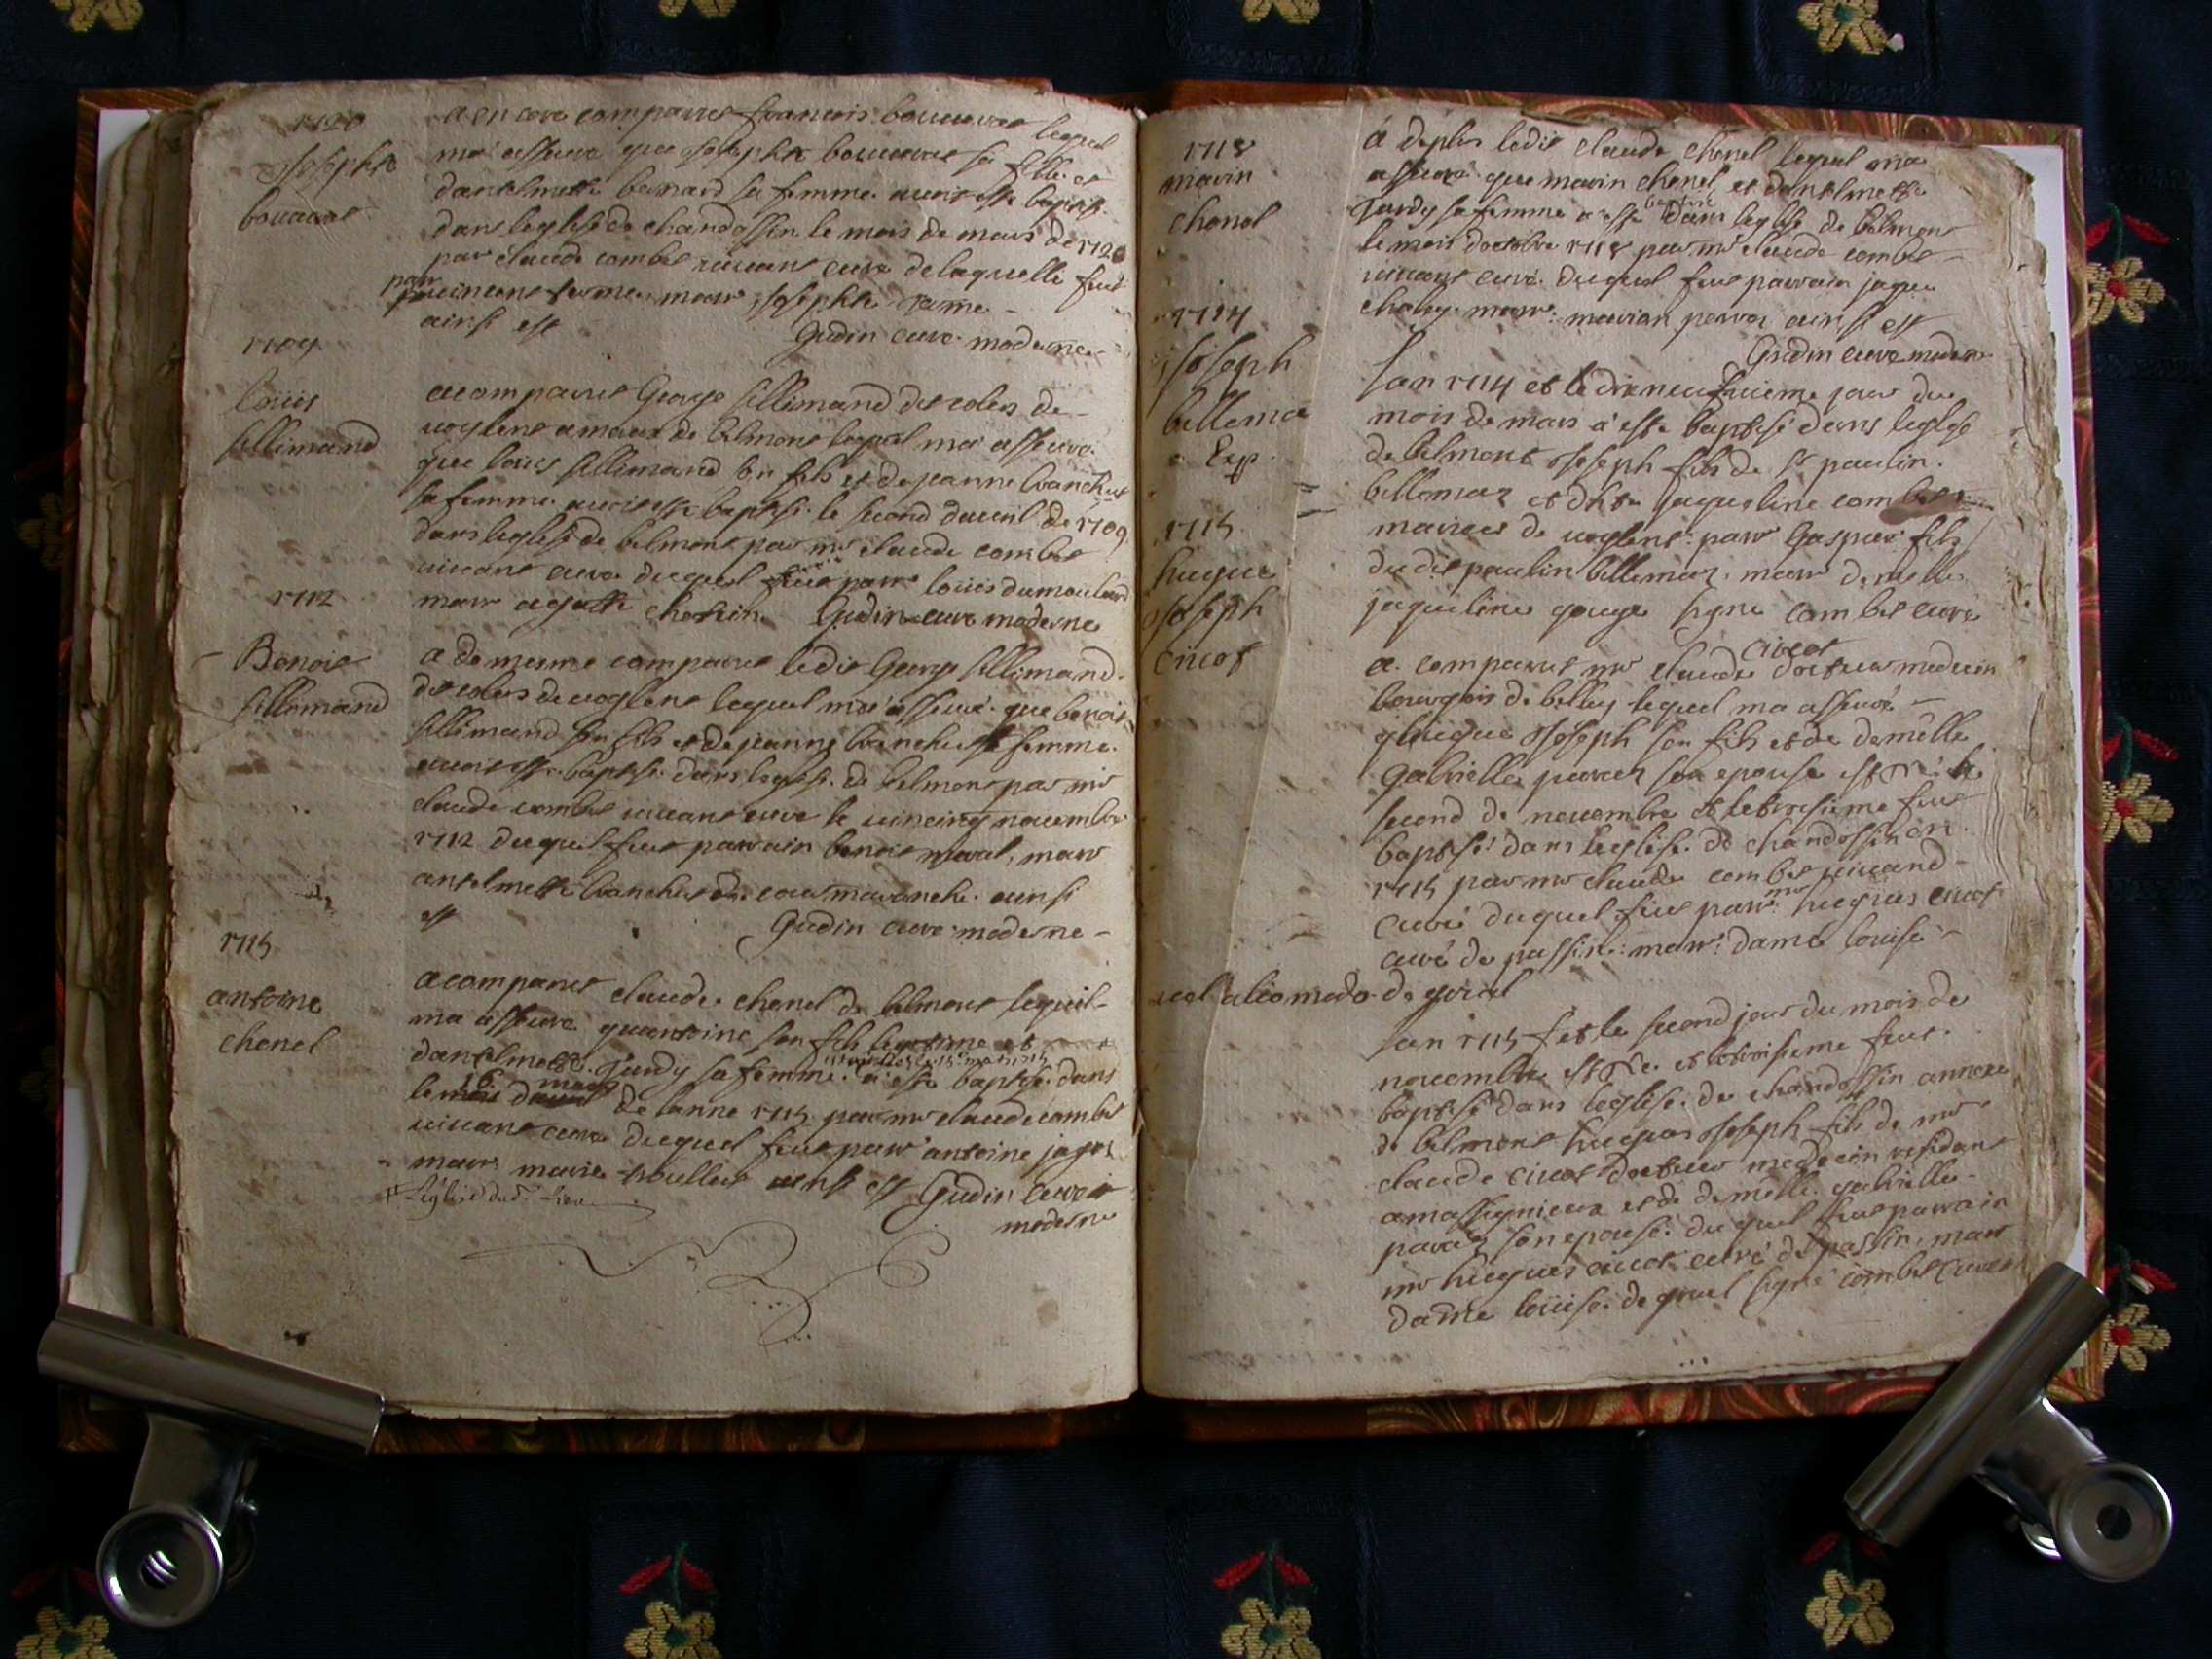 1720
Josephte
bouuard
a encore comparus francois bouuard lequel
ma asseuré que Josephte bouuard sa fille et
danthelmette bernard sa femme auoit esté baptisé
dans leglise de chandossin le mois de mars de 1720
par claude combet viuant curé de laquelle feut
parr
marr josephte
ainsi est Gudin curé moderne
1709
loüis
sillimand
a comparus George sillimand des coles de
uoglens amaux de belmont lequel ma asseuré
que loüis sillimand son fils et de jeanne branchut
sa femme auoit esté baptisé le second dauril de 1709
dans leglise de belmont par mr claude combet
viuant curé duquel feut parr loüis dumoulard
marr agathe Gudin curé moderne
1712
Benoit
sillimand
a de mesme comparus ledit George sillimand
des coles de uoglens lequel ma asseuré que benoit
sillimand son fils et de jeanne branchut sa femme
auoit esté baptisé dans leglise de belmont par mr
claude combet viuant curé le vincinq nouembre
1712 duquel feut parrain benoit marr
anthelmette branchut de courmaranche ainsi
est Gudin curé moderne
1715
antoine
chenel
a comparus claude chenel de belmont lequel
ma asseuré quantoine son fils legitime et
danthelmette Tardy sa femme a esté baptisé dans
16 mars
le de lanne 1715 par mr claude combet
viuant curé duquel feut parr antoine
marr marie ainsi est Gudin curé
moderne
Léglise dud. lieu
1718
marin
chenel
a deplus ledit claude chenel lequel ma
asseuré que marin chenel et danthelmette
baptisé
Tardy sa femme a esté dans leglise de belmont
le mois doctobre 1718 par mr claude combet
viuant curé duquel feut parrain jaque
marr ainsi est
Gudin curé moderne
1714
joseph
billema
Exp
lan 1714 et le dixneufuieme jour du
mois de mars a esté baptisé dans leglise
de belmont joseph fils de Sr paulin
billemaz et dhte jaqueline combet
mariés de uoglens parr Gaspar fils
du dit paulin billemaz marr demelle
jaqueline gouge signe combet curé
1715
hugue
joseph
ciuot
ciuot
a comparus mr claude docteur medecin
bourgois de belley lequel ma asseuré
quhugue joseph son fils et de demelle
Gabrielle parraz son epouse est né le
second de nouembre et letroisieme feut
baptisé dans leglise de chandossin en
1715 par mr claude combet viuand
mr
curé duquel feut parr hugues ciuot
curé de passin marr dame louise
uel alio modo de gruel
lan 1715 et le second jour du mois de
nouembre est né et letroisieme feut
baptisé dans leglise de chandossin annexe
de belmont hugues joseph fils de mr
claude ciuot docteur medecin residant
amassignieux et de demelle gabrielle
parraz son epouse duquel feut parrain
mr hugues ciuot curé de passin, marr
dame loüise de gruel signé combet curé